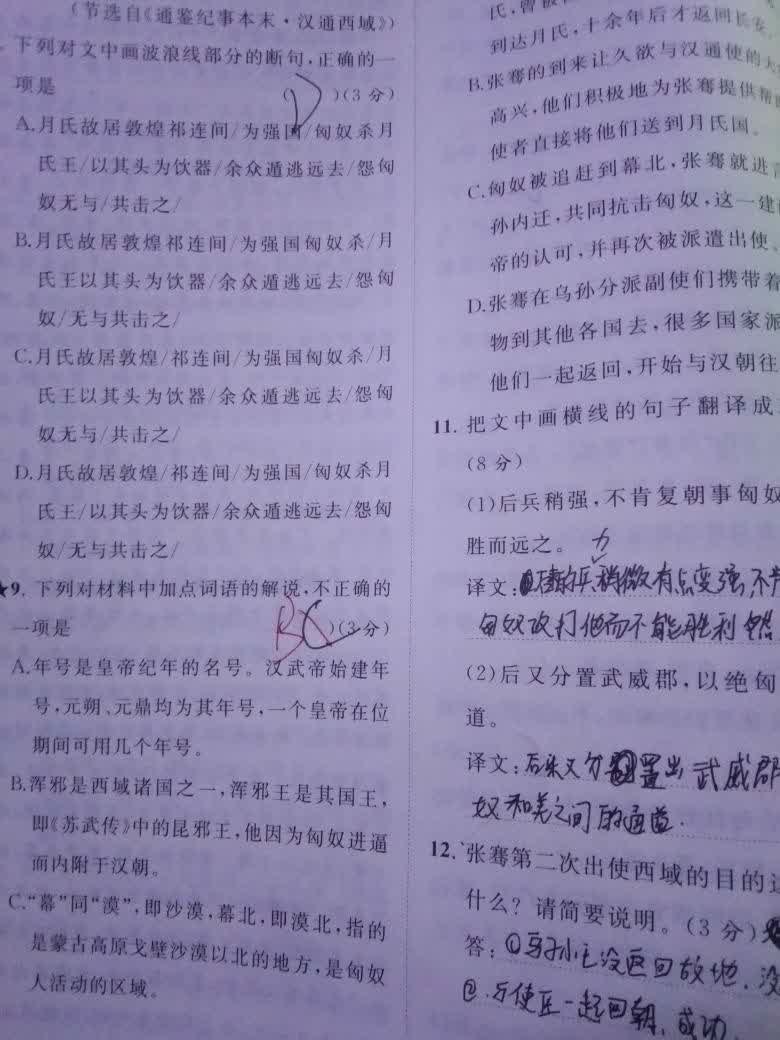 (节选自《通鉴纪事本末·汉通西域》)
下列对文中画波浪线部分的断句,正确的一
项是
( D )(3分)
A.月氏故居敦煌祁连间/为强国/匈奴杀月
氏王/以其头为饮器/余众遁逃远去/怨匈
奴无与/共击之/
B.月氏故居敦煌祁连间/为强国匈奴杀/月
氏王以其头为饮器/余众遁逃远去/怨匈
奴/无与共击之/
C.月氏故居敦煌/祁连间/为强国匈奴杀/月
氏王以其头为饮器/余众遁逃远去/怨匈
奴无与/共击之/
D.月氏故居敦煌/祁连间/为强国/匈奴杀月
氏王/以其头为饮器/余众遁逃远去/怨匈
奴/无与共击之/
★9. 下列对材料中加点词语的解说,不正确的
一项是
B
C )(3分)
A.年号是皇帝纪年的名号。汉武帝始建年
号,元朔、元鼎均为其年号,一个皇帝在位
期间可用几个年号。
B.浑邪是西域诸国之一,浑邪王是其国王,
即《苏武传》中的昆邪王,他因为匈奴进逼
而内附于汉朝。
C.“幕”同“漠”,即沙漠,幕北,即漠北,指的
是蒙古高原戈壁沙漠以北的地方,是匈奴
人活动的区域。
氏,曾被
到达月氏,十余年后才返回长安。
B.张骞的到来让久欲与汉通使的大
高兴,他们积极地为张骞提供帮
使者直接将他们送到月氏国。
C.匈奴被追赶到幕北,张骞就进
孙内迁,共同抗击匈奴,这一建
帝的认可,并再次被派遣出使、
D.张骞在乌孙分派副使们携带着
物到其他各国去,很多国家派
他们一起返回,开始与汉朝往
11. 把文中画横线的句子翻译成
(8分)
(1)后兵稍强,不肯复朝事匈奴
胜而远之。
译文:
兵稍微有点变强,不肯
匈奴攻打他而不能胜利
(2)后又分置武威郡,以绝匈
道。
译文:后来又分
置出 武威郡
奴和羌之间的通道.
12. 张骞第二次出使西域的目的
什么? 请简要说明。(3分)
答: ①乌孙王没返回故地.没
②.与使臣一起回朝、成功.